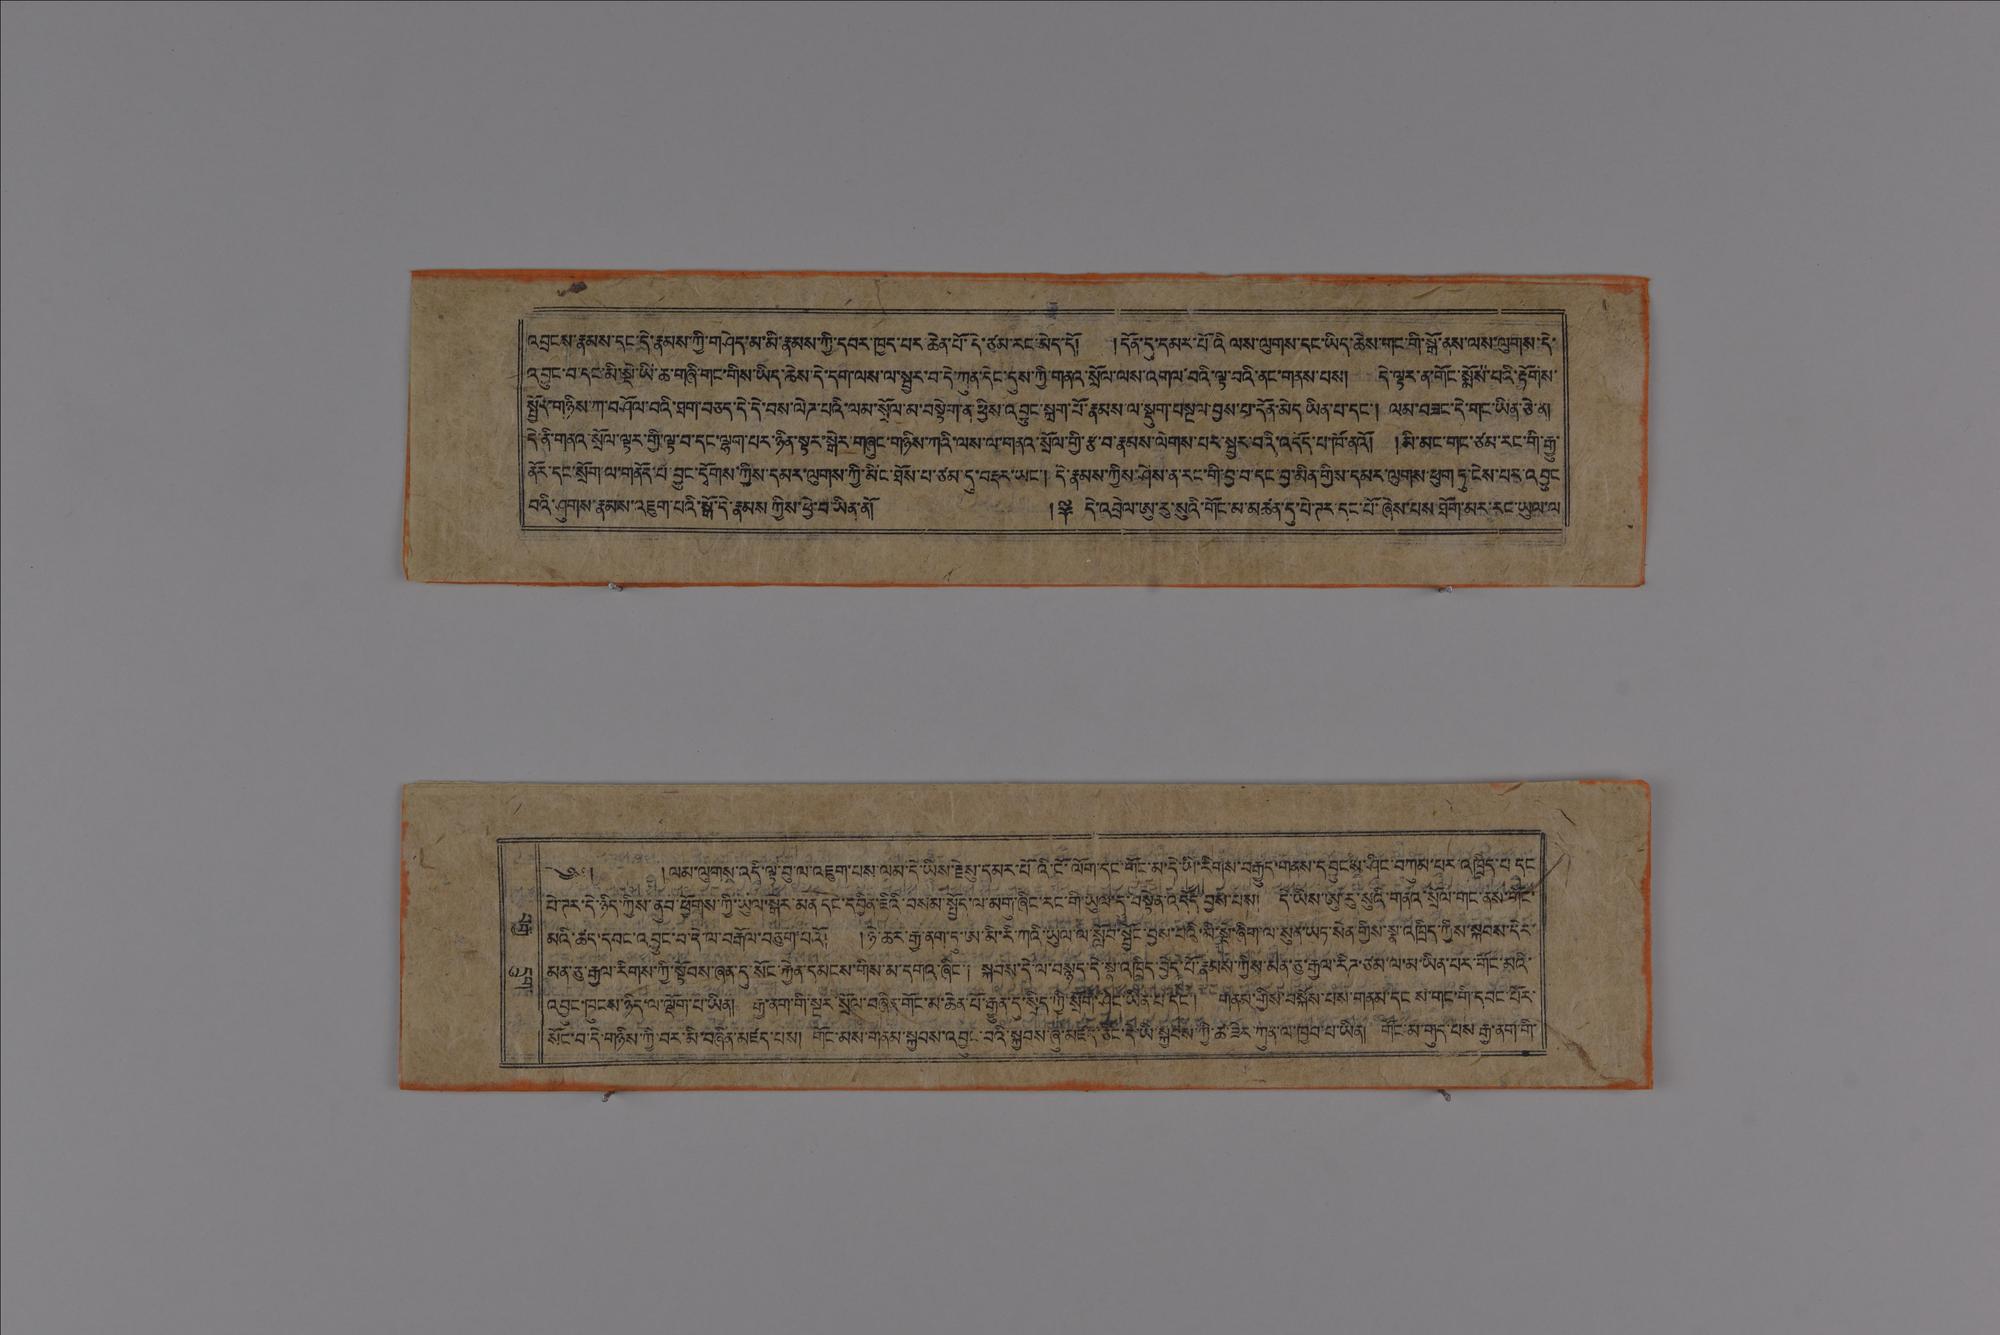 འབྲངས་རྣམས་དང་དེ་རྣམས་ཀྱི་གཤེད་མ་མི་རྣམས་ཀྱི་དབར་ཁྱད་པར་ཆེན་པོ་དེ་ཙམ་རང་མེད་དོ། །དོན་དུ་དམར་པོ་འི་ལས་ལུགས་དང་ཡིད་ཆེས་གང་གི་སྒོ་ནས་ལས་ལུགས་དེ་
འབྱུང་བ་དང་མི་སྡེ་ཡི་ཆ་གཞི་གང་གིས་ཡིད་ཆེས་དེ་དག་ལས་ལ་སྦྱར་བ་དེ་ཀུན་དེང་དུས་ཀྱི་གནའ་སྲོལ་ལས་འགལ་བའི་ལྟ་བའི་ནང་གནས་པས། དེ་ལྟར་ན་གོང་སྨོས་པའི་རྟོགས་
སྤྱོད་གཉིས་ཀ་བཤོལ་བའི་ཐག་བཅད་དེ་དེ་བས་ལེགས་པའི་ལམ་སྲོལ་མ་བསྟེག་ན་ཕྱིས་འབྱུང་སྐྲག་པོ་རྣམས་ལ་སྡུག་བསྔལ་བྱས་བྱ་དོན་མེད་ཡིན་པ་དང་། ལམ་བཟང་དེ་གང་ཡིན་ཅེ་ན།
དེ་ནི་གནའ་སྲོལ་ལྟར་གྱི་ལྟ་བ་དང་ལྷག་པར་ཉིན་ལྟར་སྒེར་གཞུང་གཉིས་ཀའི་ལས་ལ་གནའ་སྲོལ་གྱི་རྩ་བ་རྣམས་ལེགས་པར་སྦྱར་བའི་འདོད་པ་ཁོ་ནའོ། །མི་མང་གང་ཙམ་རང་གི་རྒྱུ་
ནོར་དང་སྲོག་ལ་གནོད་པ་བྱུང་དྭོགས་ཀྱིས་དམར་ལུགས་ཀྱི་མིང་ཐོས་པ་ཙམ་དུ་བརྡར་ཡང་། དེ་རྣམས་ཀྱིས་ཤེས་ན་རང་གི་བྱ་བ་དང་བྱ་མིན་གྱིས་དམར་ལུགས་ཕྱུག་ཏུ་ངེས་པར་འབྱུང་
བའི་ཤུགས་རྣམས་འཇུག་པའི་སྒོ་དེ་རྣམས་ཀྱིས་ཕྱེ་བ་ཡིན་ནོ། །༈ དེ་འབྲེལ་ཨུ་རུ་སུའི་གོང་མ་མཚན་དུ་པེ་ཊར་དང་པོ་ཞེས་པས་ཐོག་མར་རང་ཡུལ་ལ
༄༅། །ལམ་ལུགས་འདི་ལྟ་བུ་ལ་འཇུག་པས་ལམ་དེ་ཡིས་རྗེསུ་དམར་པོ་འི་ངོ་ལོག་དང་གོང་མ་དེ་ཡི་རིགས་བརྒྱུད་གནས་དབྱུང་སྟེ་ཤིང་བཀུམ་པར་འཁྲིད་པ་དང
པེ་ཊར་དེ་ཉིད་ཀྱིས་ནུབ་ཕྱོགས་ཀྱི་ཡུལ་སྐོར་མན་དང་དབྱིན་ཇིའི་བསམ་སྤྱོད་ལ་མགུ་ཞིང་རང་གི་ཡུལ་དུ་བསྟེན་འདོད་བྱས་པས། དེ་ཡིས་ཨུ་རུ་སུའི་གནའ་སྲོལ་གང་ནས་གོང་
མའི་ཚད་དབང་འབྱུང་བ་དེ་ལ་བརྒོལ་བཅུག་པའོ། །ཉེ་ཆར་རྒྱ་ནག་ཏུ་ཨ་མི་རི་ཀའི་ཡུལ་ལ་སློབ་སྦྱོང་བྱས་པའི་མི་སྣེ་ཞིག་ལ་སུན་ཡད་སེན་གྱིས་སྣ་འཁྲིད་ཀྱིས་སྐབས་དེར་
མན་ཅུ་རྒྱལ་རིགས་ཀྱི་སྟོབས་ཞན་དུ་སོང་རྐྱེན་དམངས་གིས་མ་དགའ་ཞིང་། སྐབས་དེ་ལ་བསྟུད་དེ་སྣ་འཁྲིད་བྱེད་པོ་རྣམས་ཀྱིས་མན་ཅུ་རྒྱལ་རིགས་ཙམ་ལ་མ་ཡིན་པར་གོང་མའི་
འབྱུང་ཁུངས་ཉིད་ལ་ལྡོག་པ་ཡིན། རྒྱ་ནག་གི་སྔར་སྲོལ་བཞིན་གོང་མ་ཆེན་པོ་རྒྱུན་དུ་སྲིད་ཀྱི་སྲོག་ཤིང་ཡིན་པ་དང་། གནམ་གྱིས་བསྐོས་པས་གནམ་དང་ས་གང་གི་དབང་པོར་
སོང་བ་དེ་གཉིས་ཀྱི་བར་མི་བཞིན་མཛད་པས། གོང་མས་གནམ་སྐྱབས་འབྱུང་བའི་སྐྱབས་ཞུ་མཛད་ཅིང་དེ་ཡི་སྐྱབས་ཀྱི་ཚ་ཟེར་ཀུན་ལ་ཁྱབ་པ་ཡིན། གོང་མ་གུད་པས་རྒྱ་ནག་གི་